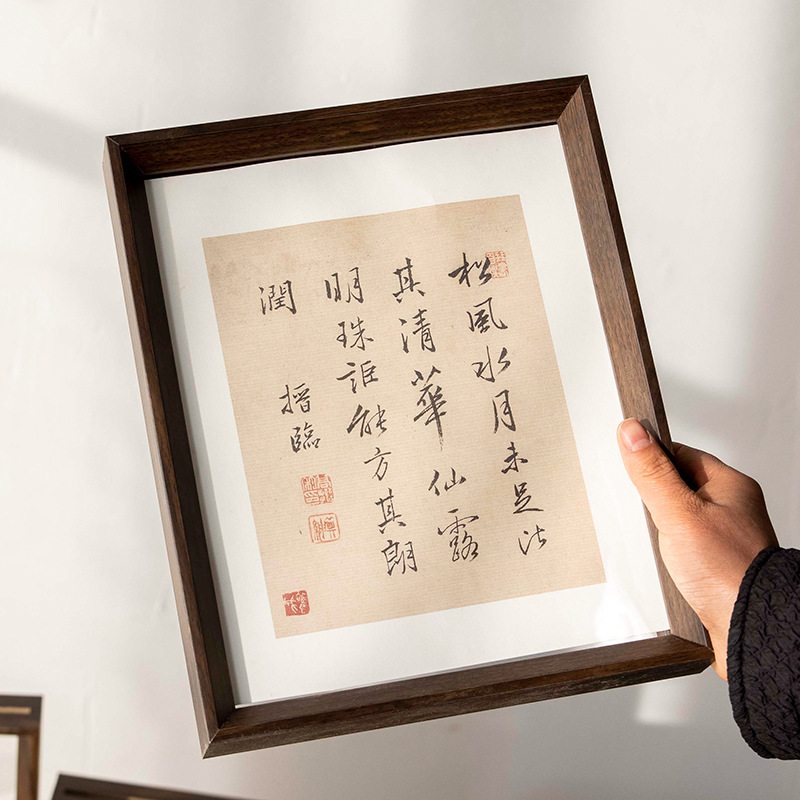 松風水月未足比
其清華仙露
明珠詎能方其朗
潤
搢臨